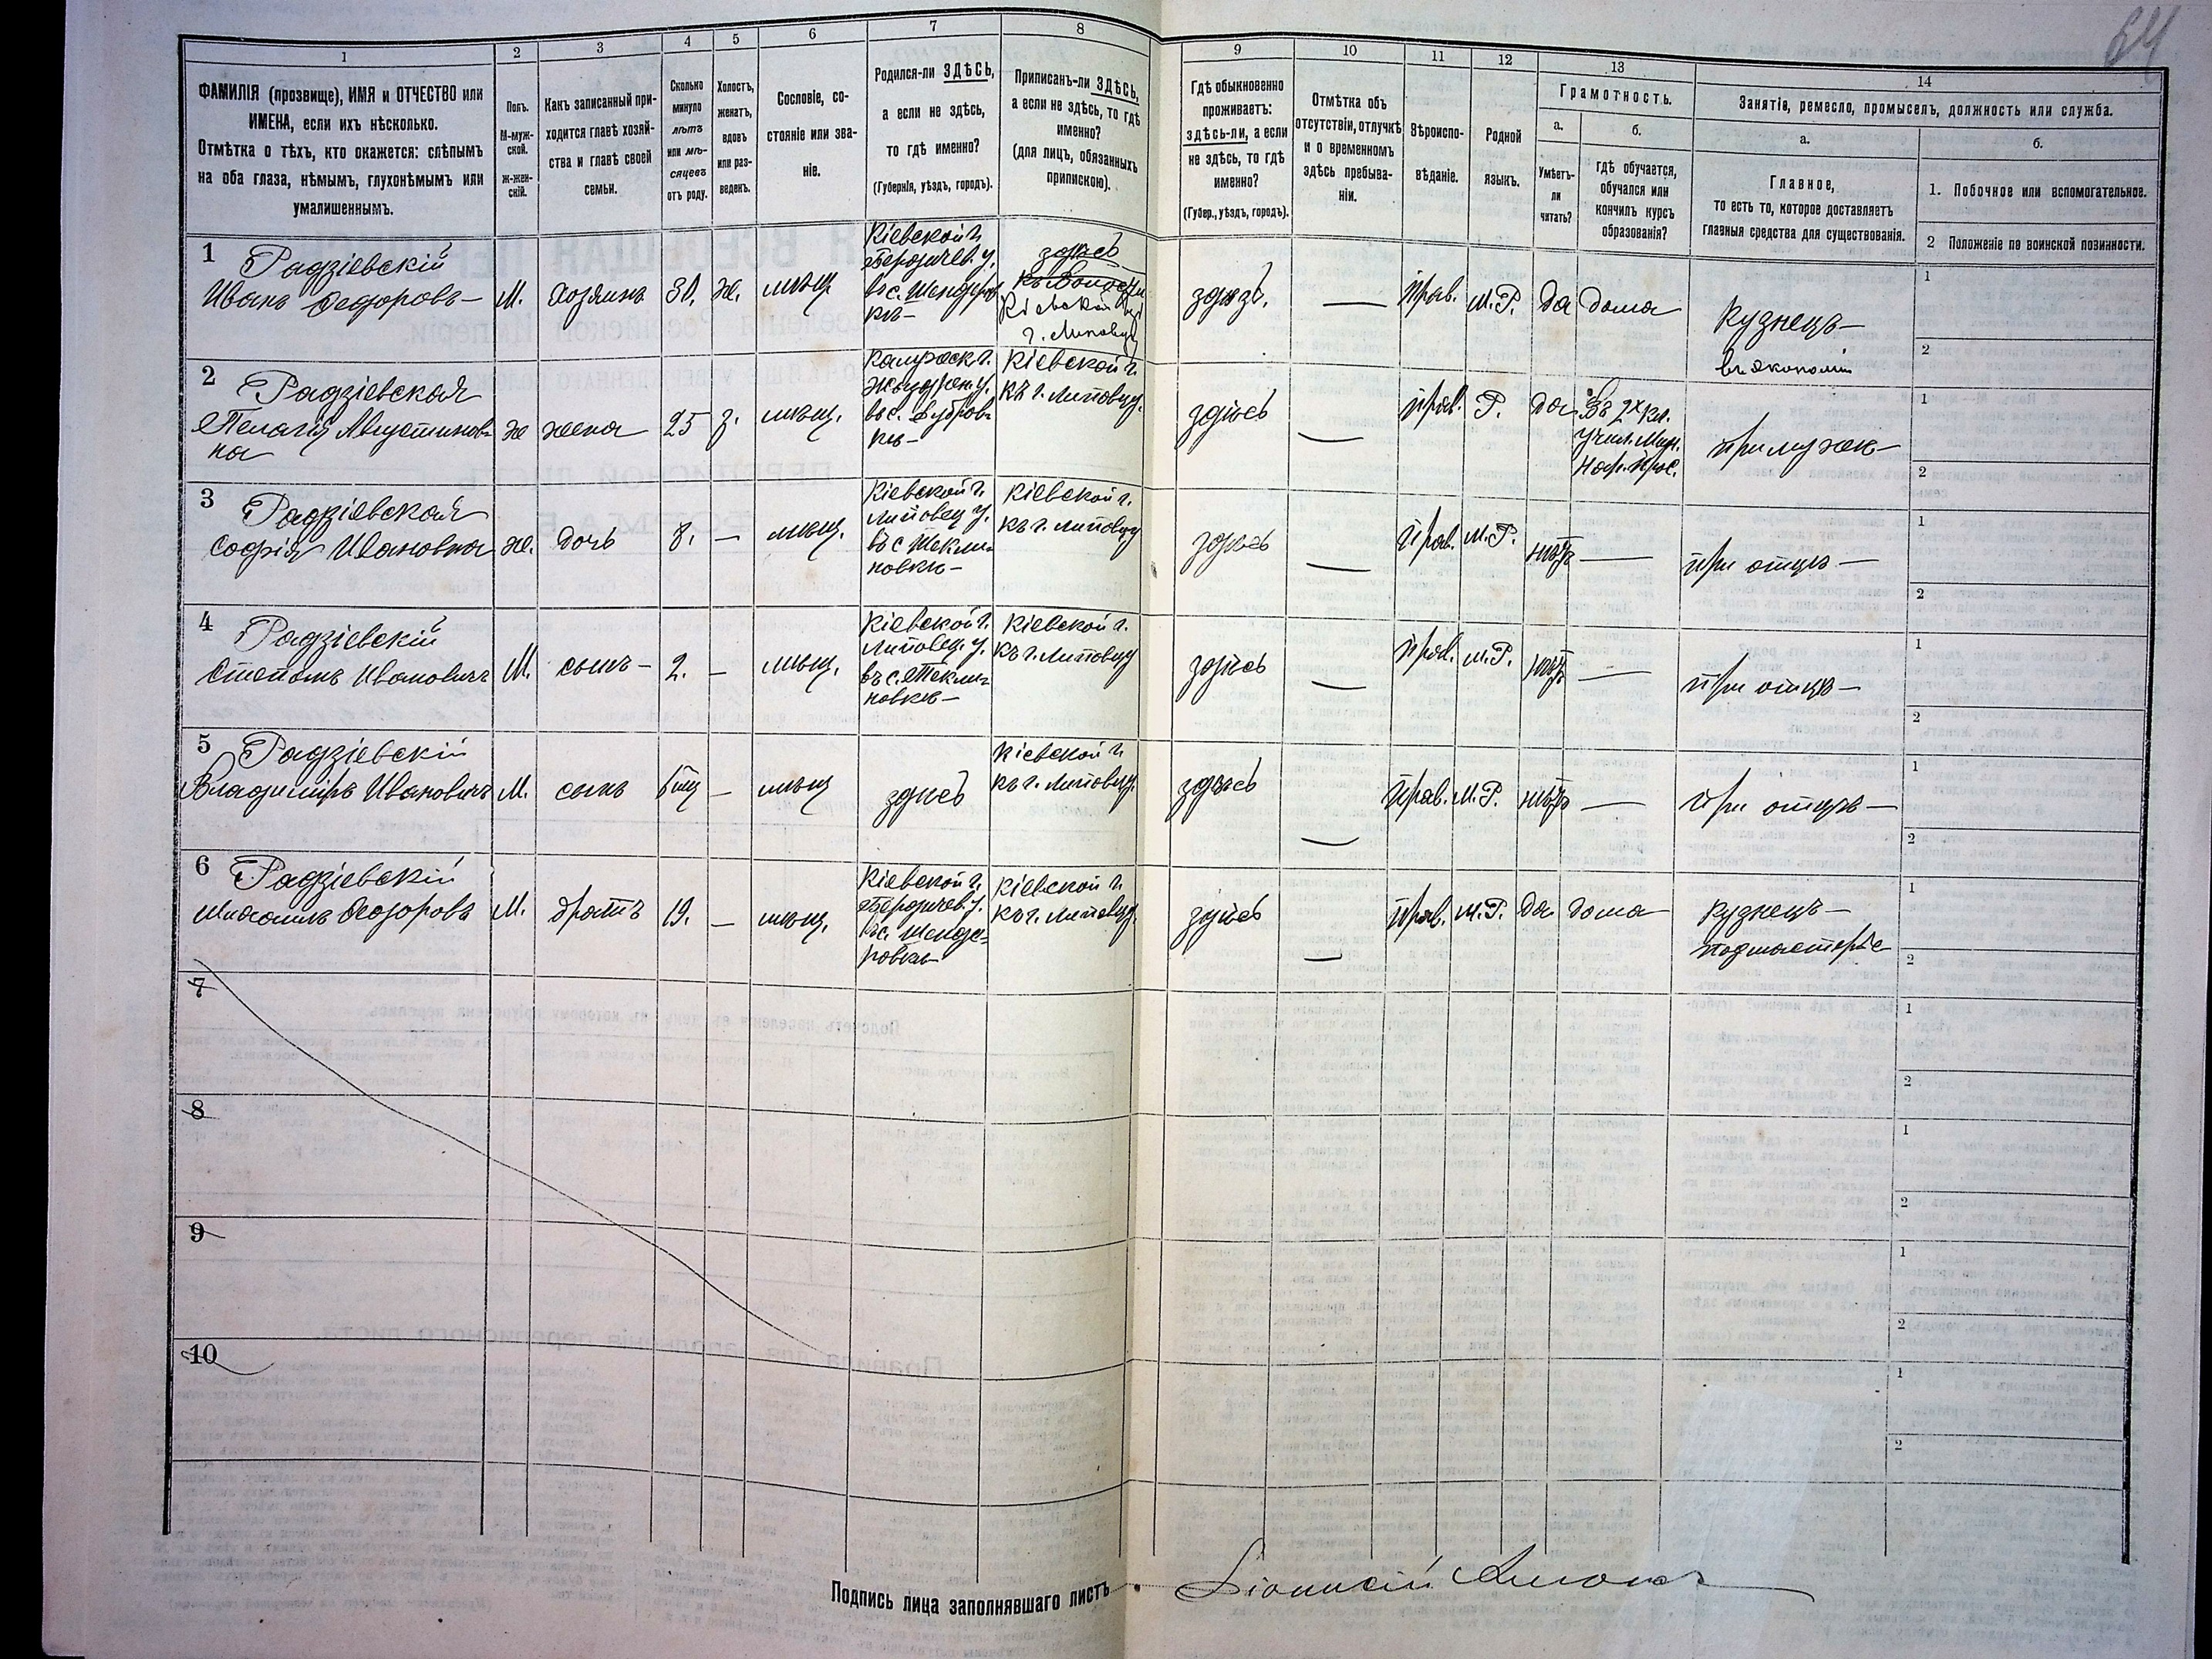 64
1
2
3
4
5
6
7
8
9
10
11
12
13
14
ФАМИЛІЯ (прозвище), ИМЯ и ОТЧЕСТВО или
ИМЕНА, если ихъ нѣсколько.
Отмѣтка о тѣхъ, кто окажется: слѣпымъ
на оба глаза, нѣмымъ, глухонѣмымъ или
умалишеннымъ.
Полъ.
М-муж-
ской.
ж-жен-
скій.
Какъ записанный при-
ходится главѣ хозяй-
ства и главѣ своей
семьи.
Сколько
минуло
лѣтъ
или мѣ-
сяцевъ
отъ роду.
Холостъ,
женатъ,
вдовъ
или раз-
веденъ.
Сословіе, со-
стояніе или зва-
ніе.
Родился-ли ЗДѢСЬ,
а если не здѣсь,
то гдѣ именно?
(Губернія, уѣздъ, городъ).
Приписанъ-ли ЗДѢСЬ,
а если не здѣсь, то гдѣ
именно?
(для лицъ, обязанныхъ
припискою).
Гдѣ обыкновенно
проживаетъ:
здѣсь-ли, а если
не здѣсь, то гдѣ
именно?
(Губер., уѣздъ, городъ).
Отмѣтка объ
отсутствіи, отлучкѣ
и о временномъ
здѣсь пребыва-
ніи.
Вѣроиспо-
вѣданіе.
Родной
языкъ.
Грамотность.
а.
б.
Умѣетъ-
ли
читать?
Гдѣ обучается,
обучался или
кончилъ курсъ
образованія?
Занятіе, ремесло, промыселъ, должность или служба.
а.
б.
Главное,
то есть то, которое доставляетъ
главныя средства для существованія.
1. Побочное или вспомогательное.
2 Положеніе по воинской повинности.
1
Радзіевскій
Иванъ Ѳедоровъ—
М.
хозяинъ
30.
же.
мѣщ
Кіевской г.
Бердичев. у.
въ с. Шендеров
кѣ—
здѣсь
Кіевской губ
г. Липовцу
здѣсь.
—
Прав.
М.Р.
да
дома
Кузнецъ—
въ экономіи
1
2
2
Радзіевская
Пелагія Августинов-
на
ж
жена
25
з.
мѣщ.
въ с. Дубров-
кѣ—
Кіевской г.
къ г. Липовцу.
здѣсь
—
Прав.
Р.
да
Въ 2х кл.
учил. Мин.
Нар. Прос.
при мужѣ—
1
2
3
Радзіевская
Софія Ивановна
ж.
дочь
8.
—
мѣщ.
Кіевской г.
Липовец у.
въ с Текли-
новкѣ—
Кіевской г.
къ г. Липовцу
здѣсь
—
Прав.
М.Р.
нѣтъ
—
при отцѣ—
1
2
4
Радзіевскій
Степанъ Ивановичъ
М.
сынъ—
2.
—
мѣщ.
Кіевской г.
Липовец. у.
въ с. Текли-
новкѣ—
Кіевской г.
къ г. Липовцу
здѣсь
—
Прав.
М.Р.
нѣтъ
—
при отцѣ—
1
2
5
Радзіевскій
Владимиръ Ивановичъ
М.
сынъ
—
мѣщ
здѣсь
Кіевской г.
къ г. Липовцу.
здѣсь
—
Прав.
М.Р.
нѣтъ
—
при отцѣ—
1
2
6
Радзіевскій
Михаилъ Ѳедоровъ
М.
братъ
19.
—
мѣщ.
Кіевской г.
Бердичев. у.
въ с. Шенде-
ровкѣ—
Кіевской г.
къ г. Липовцу.
здѣсь
—
Прав.
М.Р.
да
дома
Кузнецъ—
подмастерье
1
2
7
1
2
8
1
2
9
1
2
10
1
2
Подпись лица заполнявшаго листъ